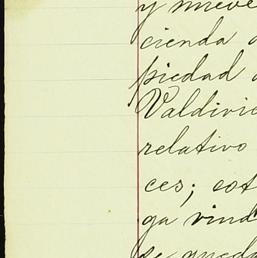 y nueve
cienda
piedad
Valdivie
relativo
ces; cot
ga vind
se queda